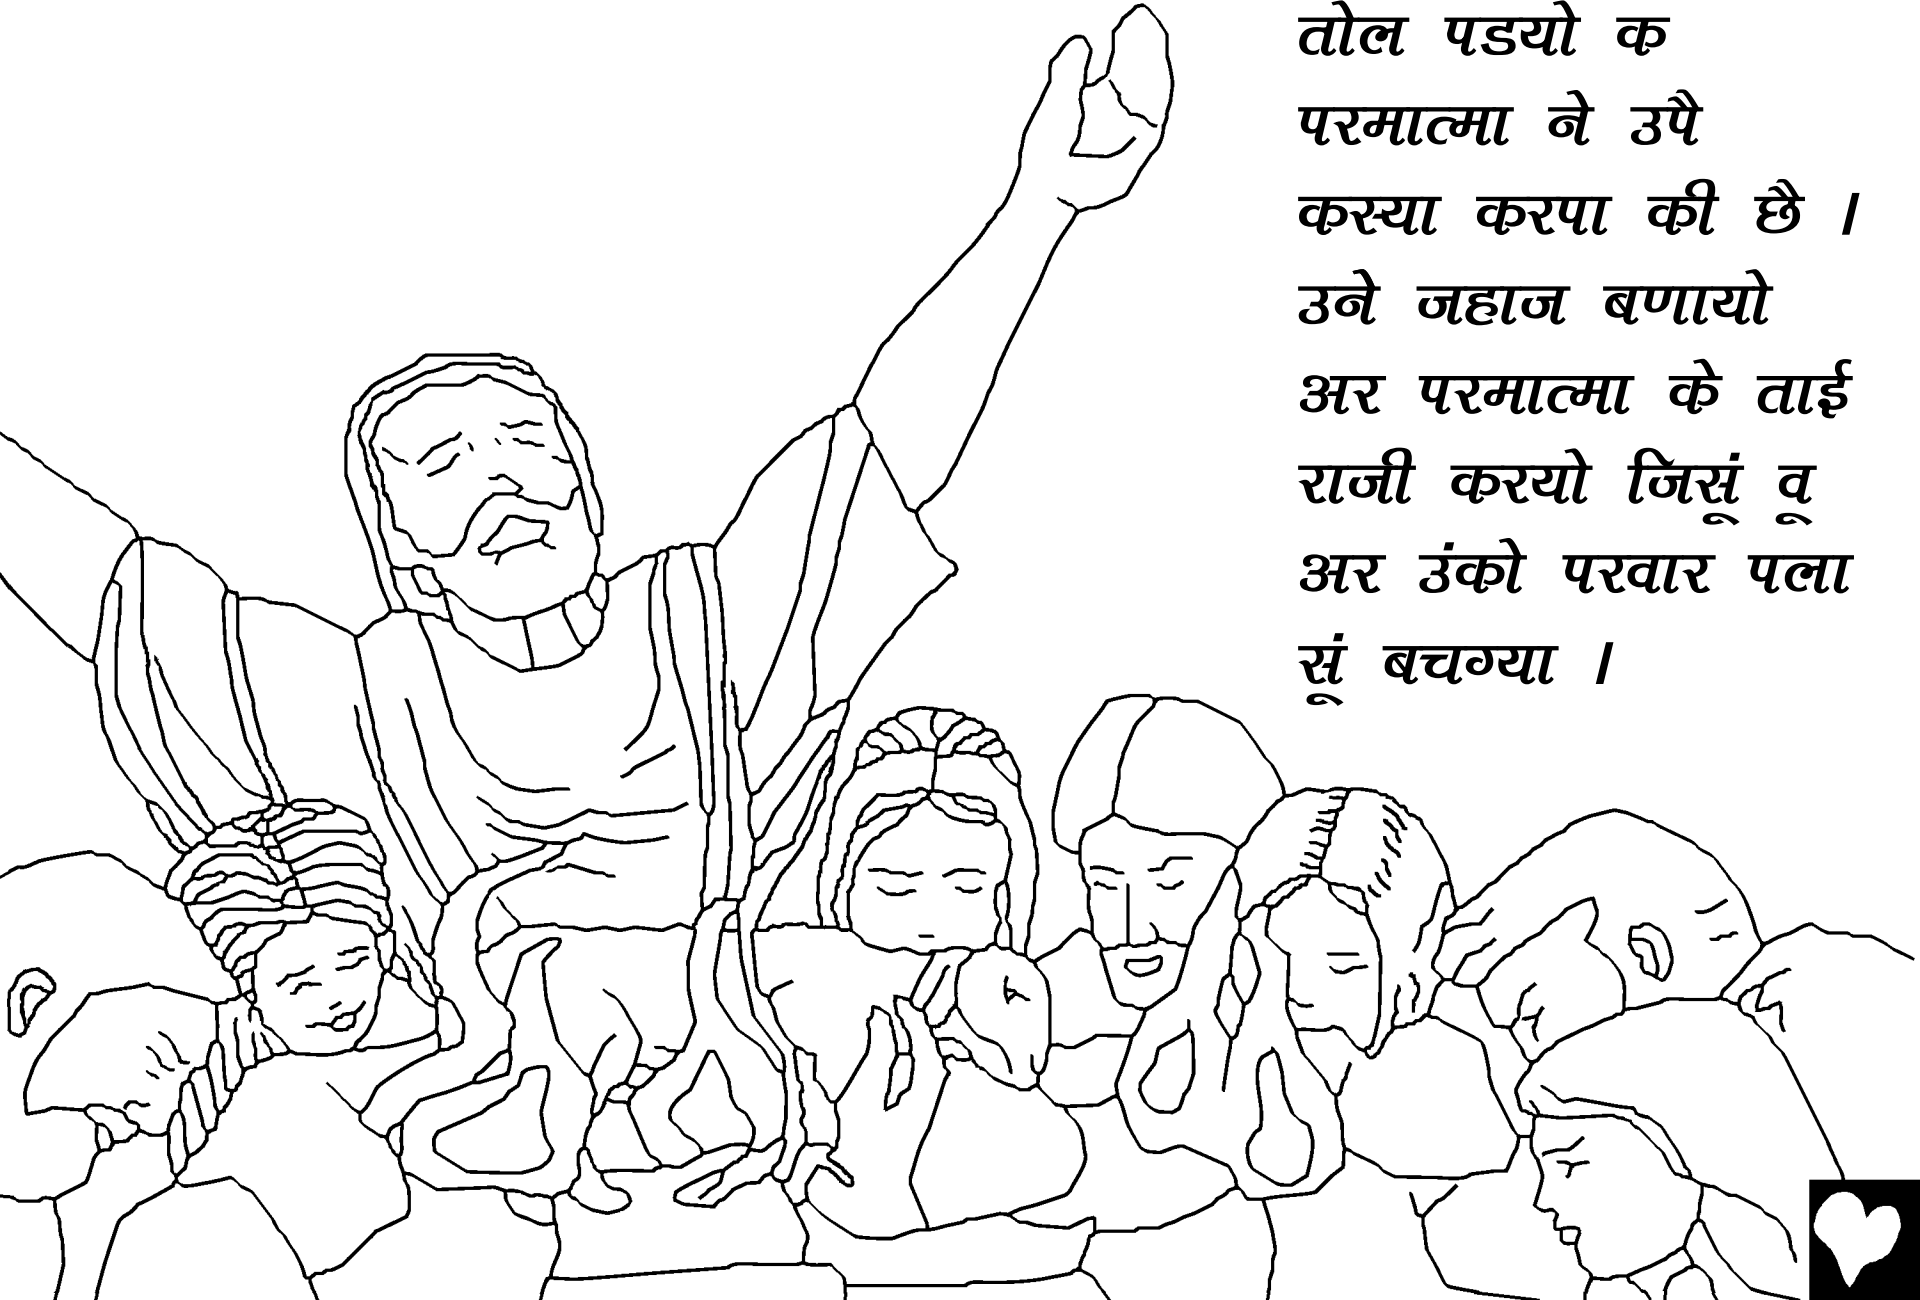 तोल पडयो क
परमात्मा ने उपै
कस्या करपा की छै ।
उने जहाज बणायो
अर परमात्मा के ताई
राजी करयो जिसूं वू
अर उंको परवार पला
सूं बचग्या ।